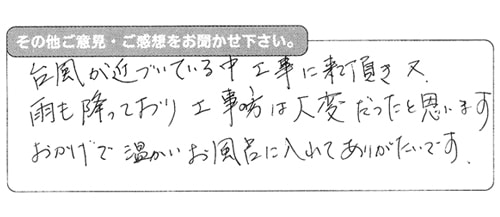 その他ご意見・ご感想をお聞かせ下さい。
台風が近づいている中工事に来て頂き又、
雨も降っており工事の方は大変だったと思います
おかげで温かいお風呂に入れてありがたいです。